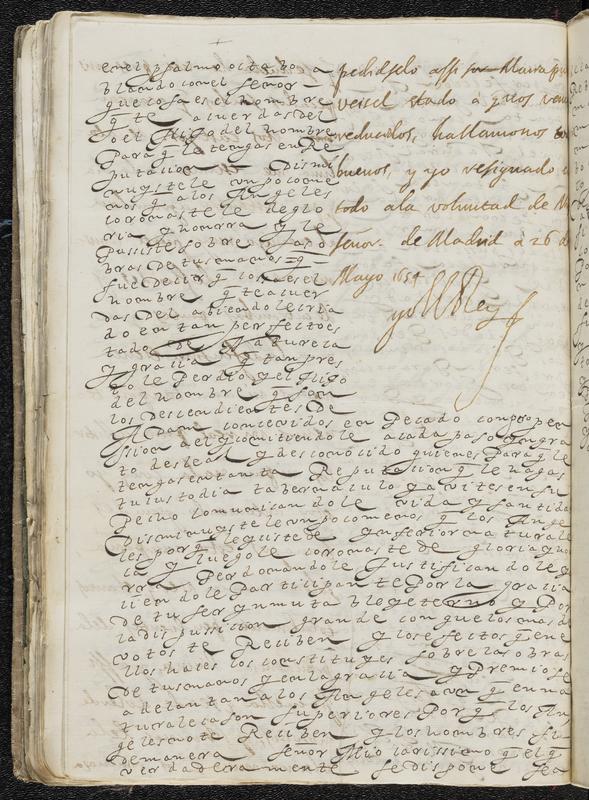 en el psalmo octabo a
blando con el señor
que cosa es el nombre
q̃ te acuerdas del
o el hijo del nombre
Para q̃ le tengas en Re
putacion Dismi
nuystele un poco me
nos q̃ a los Angeles
coronastele de glo
ria y honrra y le
pussiste sobre
bras de tus manos q̃
fue decir q̃ cosa es el
nombre q̃ te acuer
das del abiendole cria
do en tan perfecto es
tado de naturaleza
y gracia y tan pres
to le Perdio y el hijo
del nombre q̃ son
los Descendientes De
Adam concevidos en Pecado con propen
ssion a el y comitiendole a cada paso
to desleal y desconocido quien es Para q̃ le
tengas en tanta Reputacion q̃ le hagas
tu custodia tabernaculo y avites en su
Pecho comunicandole vida y santidad
Disminuystele un poco menos q̃ los Ange
les porq̃ le yciste de ynferior natural
y luego le coronaste de gloria y ho
rra Perdonandole Justificandole y
ciendole Participante Por la gracia
de tu ser ynmutable y eterno y Por
la dispussicion grande con que los mas de
votos te Reciben y los efectos q̃ en e
llos haces los constituyes sobre las obras
De tus manos y en la gracia y Premio se
adelantan a los Angeles aun q̃ en na
turaleca son superiores Porq̃ los An
geles no te Reciben y los nombres si
De manera señor Mio carissimo q̃ el q̃
verdaderamente se dispone
pedidselo assi sor Maria
veis el stado à q̃ nos
reducidos, hallamonos
buenos, y yo resignado
todo a la voluntad de
señor. de Madrid à 26 d
Mayo 1654
yo el Rey